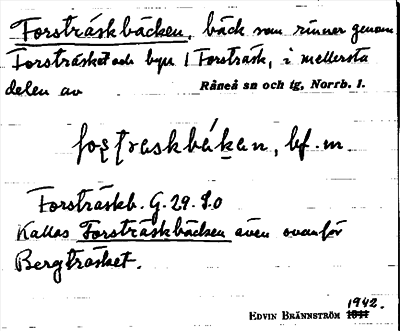 Forsträskbäcken, bäck som rinner genom
Forsträsket och byn i Forsträsk, i mellersta
delen av Råneå sn och tg, Norrb. l.
bf. m.
Forsträskb. G. 29. S.O
Kallas Forsträskbäcken även ovanför
Bergträsket.
1942.
EDVIN BRÄNNSTRÖM